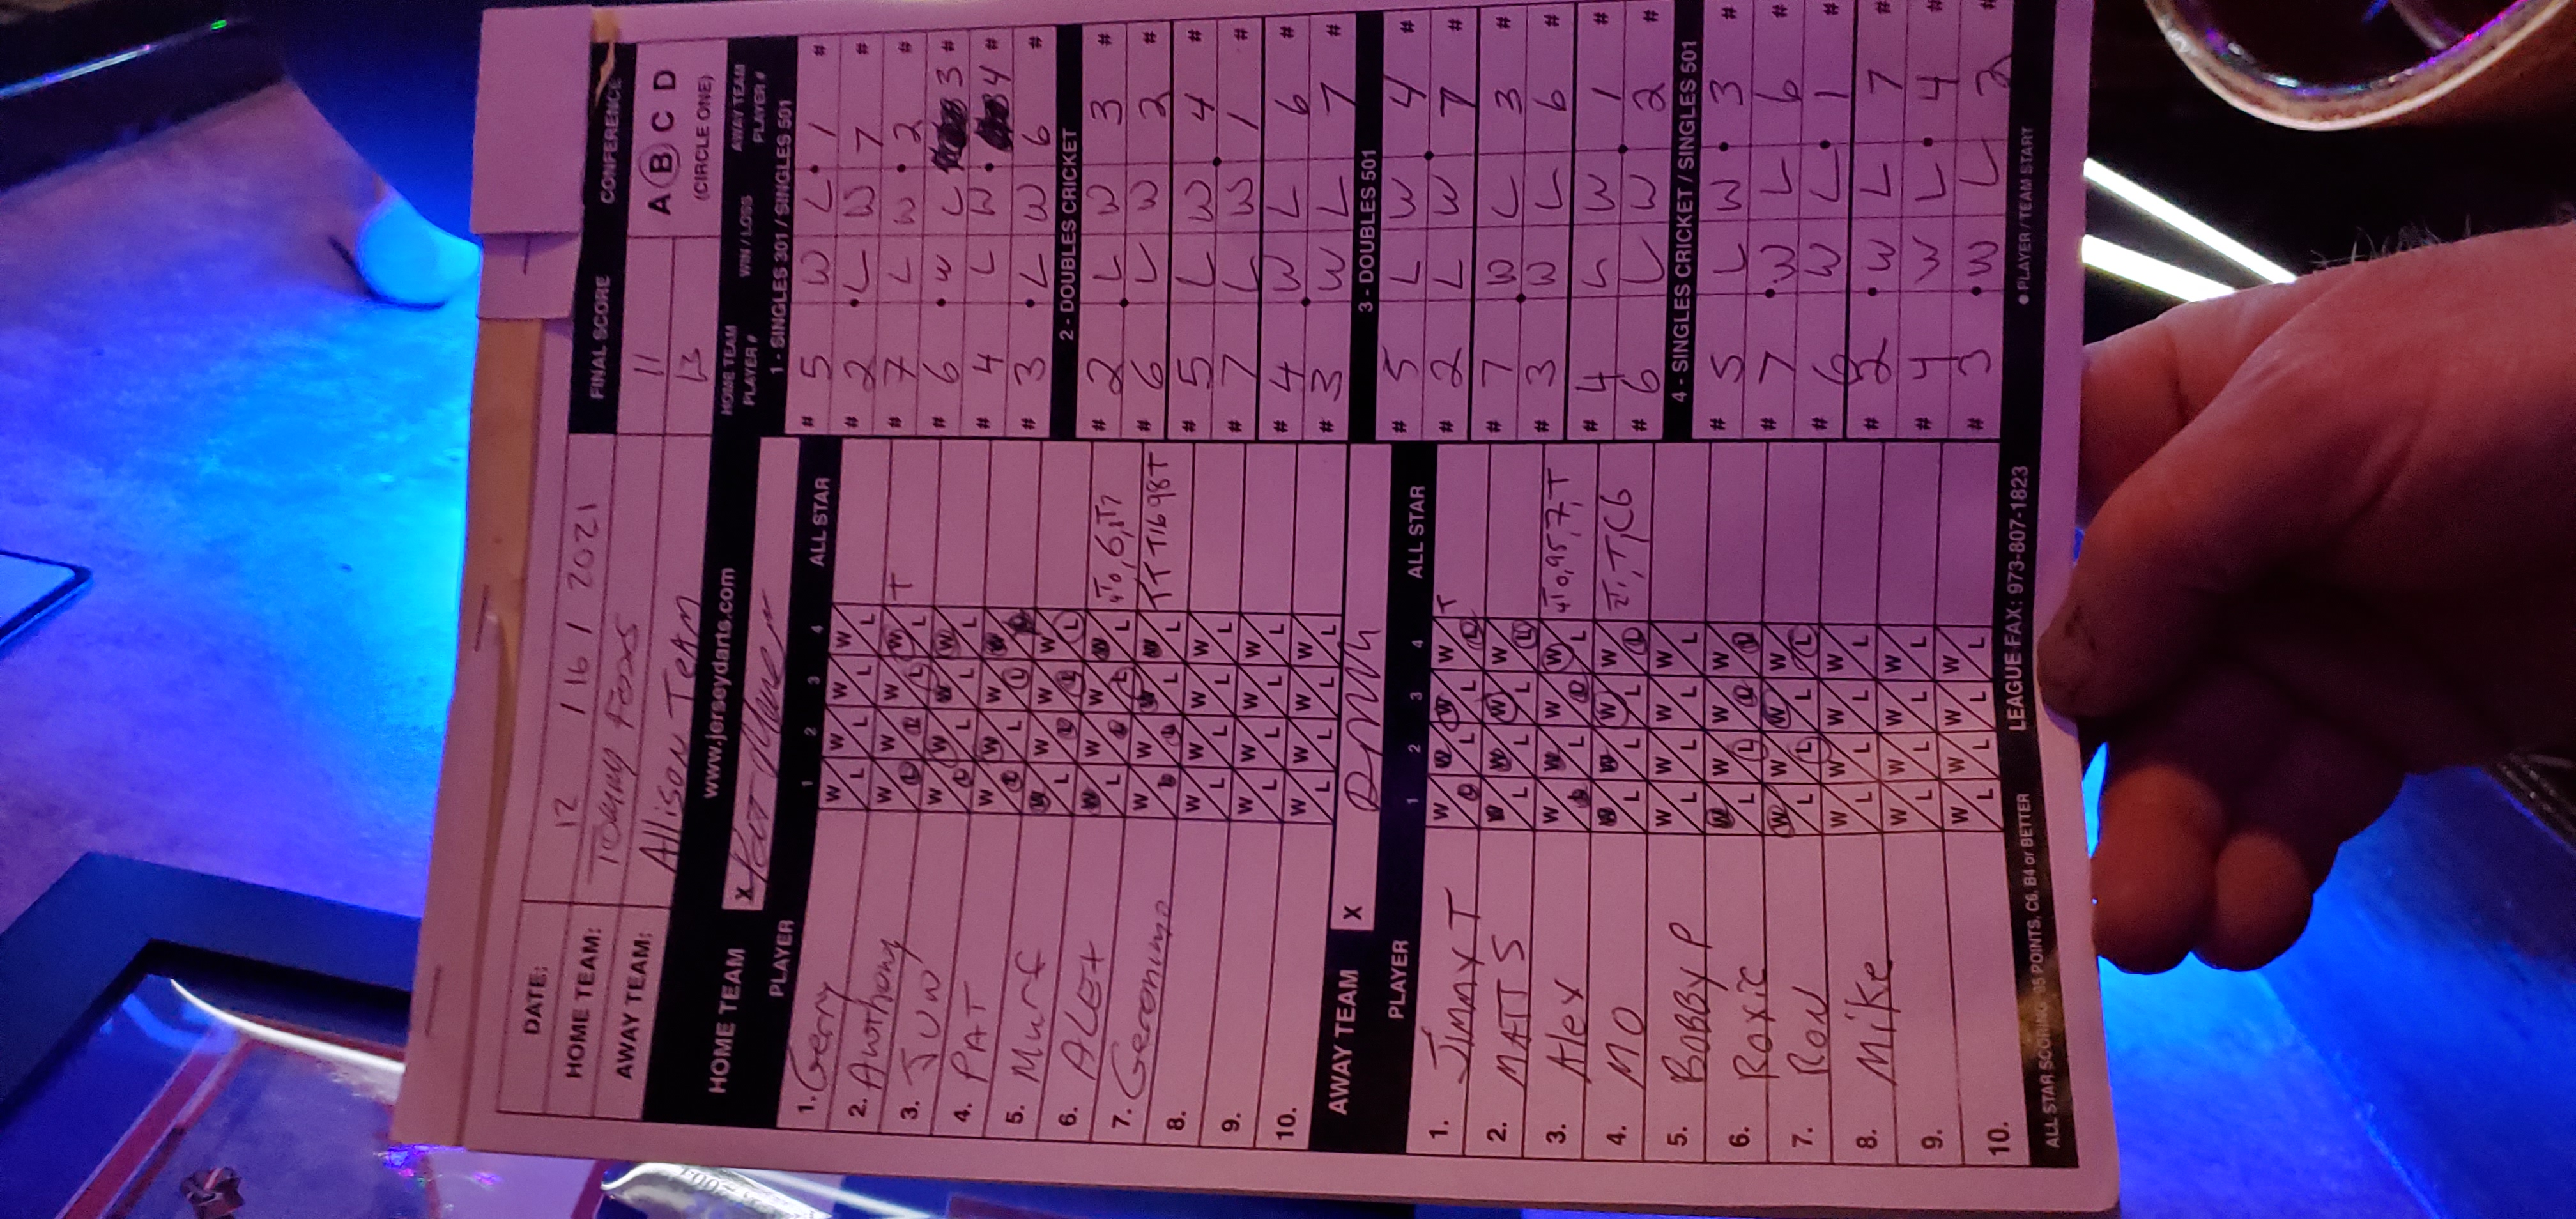 DATE: 12 / 16 / 2021
FINAL SCORE CONFERENCE
HOME TEAM: Tommy Fox's 11 A B C D
AWAY TEAM: Allison Team 13 (CIRCLE ONE)
www.jerseydarts.com
HOME TEAM X
HOME TEAM PLAYER # WIN / LOSS AWAY TEAM PLAYER #
PLAYER 1 2 3 4 ALL STAR
1. Gerry W L W L W L W L
2. Anthony W L W L W L W L T
3. JUN W L W L W L W L
4. PAT W L W L W L W L
5. Murf W L W L W L W L
6. ALEX W L W L W L W L
7. Geronimo W L W L W L W L TTT1698T
8. W L W L W L W L
9. W L W L W L W L
10. W L W L W L W L
AWAY TEAM X
PLAYER 1 2 3 4 ALL STAR
1. JIMMY T W L W L W L W L T
2. MATT S W L W L W L W L
3. Alex W L W L W L W L
4. MO W L W L W L W L
5. BOBBY P W L W L W L W L
6. Roxie W L W L W L W L
7. RON W L W L W L W L
8. Mike W L W L W L W L
9. W L W L W L W L
10. W L W L W L W L
1 - SINGLES 301 / SINGLES 501
# 5 W L • 1 #
# 2 • L W 7 #
# 7 L W • 2 #
# 6 • W L 3 #
# 4 L W • 4 #
# 3 • L W 6 #
2 - DOUBLES CRICKET
# 2 L W 3 #
# 6 L W 2 #
# 5 L W 4 #
# 7 L W 1 #
# 4 W L 6 #
# 3 W L 7 #
3 - DOUBLES 501
# 5 L W 4 #
# 2 L W 7 #
# 7 W L 3 #
# 3 W L 6 #
# 4 L W 1 #
# 6 L W 2 #
4 - SINGLES CRICKET / SINGLES 501
# 5 L W • 3 #
# 7 • W L 6 #
# 6 W L • 1 #
# 2 • W L 7 #
# 4 W L • 4 #
# 3 • W L 2 #
ALL STAR SCORING: 95 POINTS, C6, B4 or BETTER LEAGUE FAX: 973-807-1823 • PLAYER / TEAM START